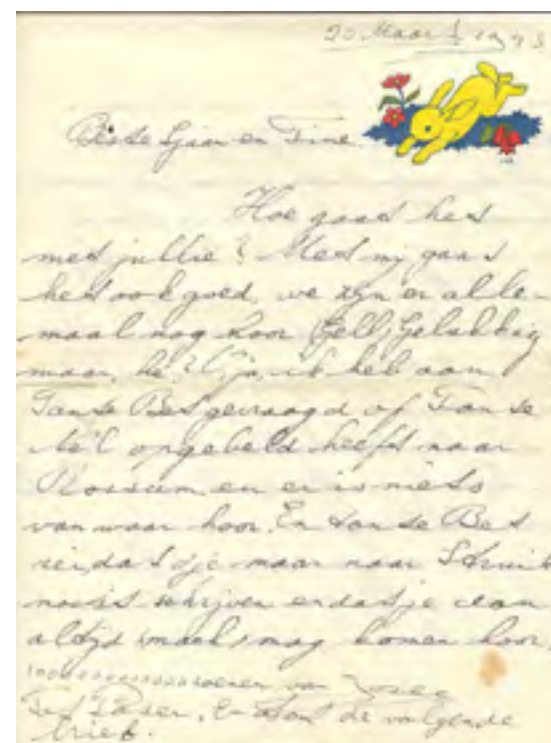 20 Maart 1943
Beste Sjaan en Tine.
Hoe gaat het
met jullie? Met mij gaat
het ook goed, we zijn er alle-
maal nog hoor Gelukkig
maar, hè? O, ja, ik heb aan
Tante Bets gevraagd of Tante
opgebeld heeft naar
Rossum, en er is niets
van waar hoor. En tante Bets
zei, dat je maar naar
moest schrijven en dat je dan
altijd mag komen hoor.
van
Paser. En tot de volgende
brief.